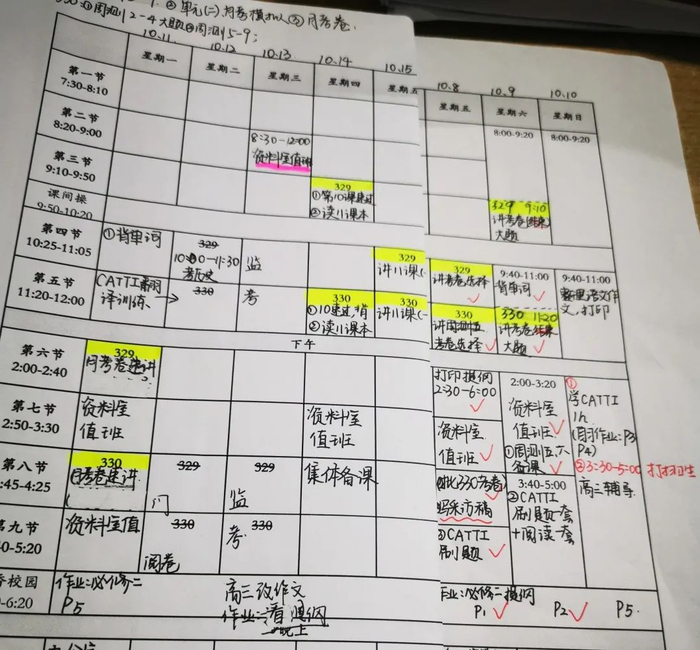 10.11 10.12 10.13 10.14 10.15
星期一 星期二 星期三 星期四 星期五
第一节
7:30-8:10
第二节
8:20-9:00
8:30-12:00
资料室值班
第三节
9:10-9:50
课间操
9:50-10:20
329
①第10课速过
②读11课本
第四节
10:25-11:05
①背单词
329
10:00-11:30
监
329
讲11课(一
第五节
11:20-12:00
CATTI翻
译训练
330
考
330
①10速过,背
②读11课本
330
讲11课(一
下午
第六节
2:00-2:40
329
月考卷速讲
第七节
2:50-3:30
资料室
值班
资料室
值班
第八节
:45-4:25
330
月考卷速讲
329
329
监
集体备课
第九节
0-5:20
资料室值
330
阅卷
330
考
校园
0-6:20
作业:必修二
P5
高三改作文
作业:看提纲
晚上
10.8 10.9 10.10
星期五 星期六 星期日
8:00-9:20 8:00-9:20
329 9:10
讲考卷结束
大题
329
讲考卷选择
9:40-11:00
背单词
9:40-11:00
整理语文作
文,打印
330
考卷选择
330 11:20
讲考卷结束
大题
打印提纲
2:30-6:00
2:00-3:20
资料室
值班
①周测五不
备课
①
学CATTI
1h
P4)
②3:30-5:00 打扫卫生
高三辅导
资料室
值班
批330考卷
写采访稿
③CATTI
刷题
3:40-5:00
②CATTI
刷题一套
+阅读一套
作业:必修二提纲
P1 P2 P5